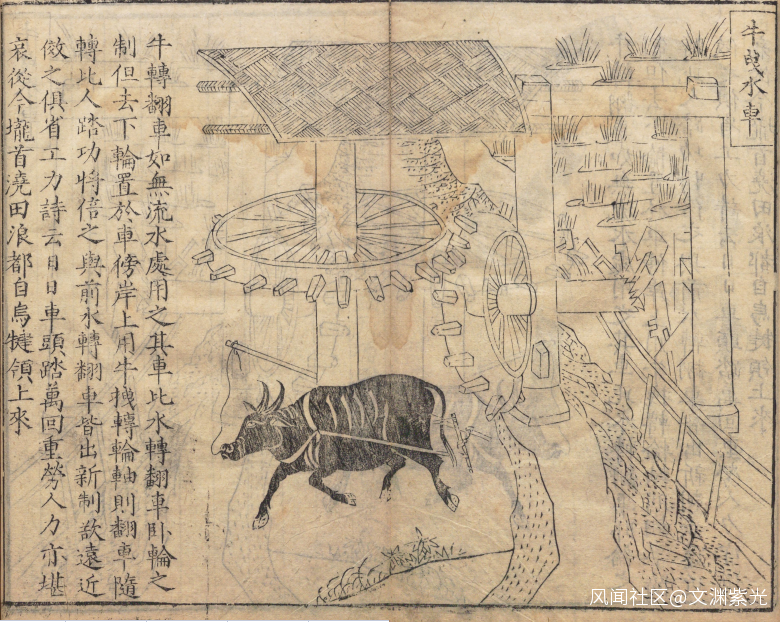 牛曳水車
牛轉翻車如無流水處用之其車比水轉翻車卧輪之
制但去下輪置於車傍岸上用牛拽轉輪軸則翻車隨
轉比人踏功將倍之與前水轉翻車皆出新制故遠近
傚之俱省工力詩云日日車頭踏萬回重勞人力亦堪
哀從今壠首澆田浪都自烏犍領上來
风闻社区@文渊紫光